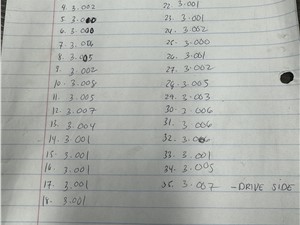 4. 3.002
5. 3.000
6. 3.000
7. 3.006
8. 3.005
9. 3.002
10. 3.005
11. 3.005
12. 3.007
13. 3.004
14. 3.001
15. 3.001
16. 3.001
17. 3.001
18. 3.001
22. 3.001
23. 3.001
24. 3.002
25. 3.000
26. 3.001
27. 3.002
28. 3.005
29. 3.003
30. 3.006
31. 3.006
32. 3.006
33. 3.001
34. 3.005
35. 3.007 - DRIVE SIDE